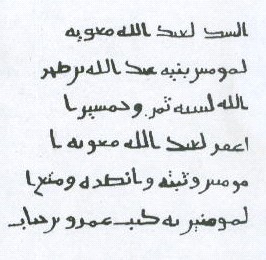 السد لعبد الله معويه
لمومنين بنيه عبد الله بن صخر
الله لسنه ثمن وخمسين ا
اغفر لعبد الله معويه ا
مومنين وثبته وانصره ومتع ا
لمومنين به كتب عمرو بن حباب